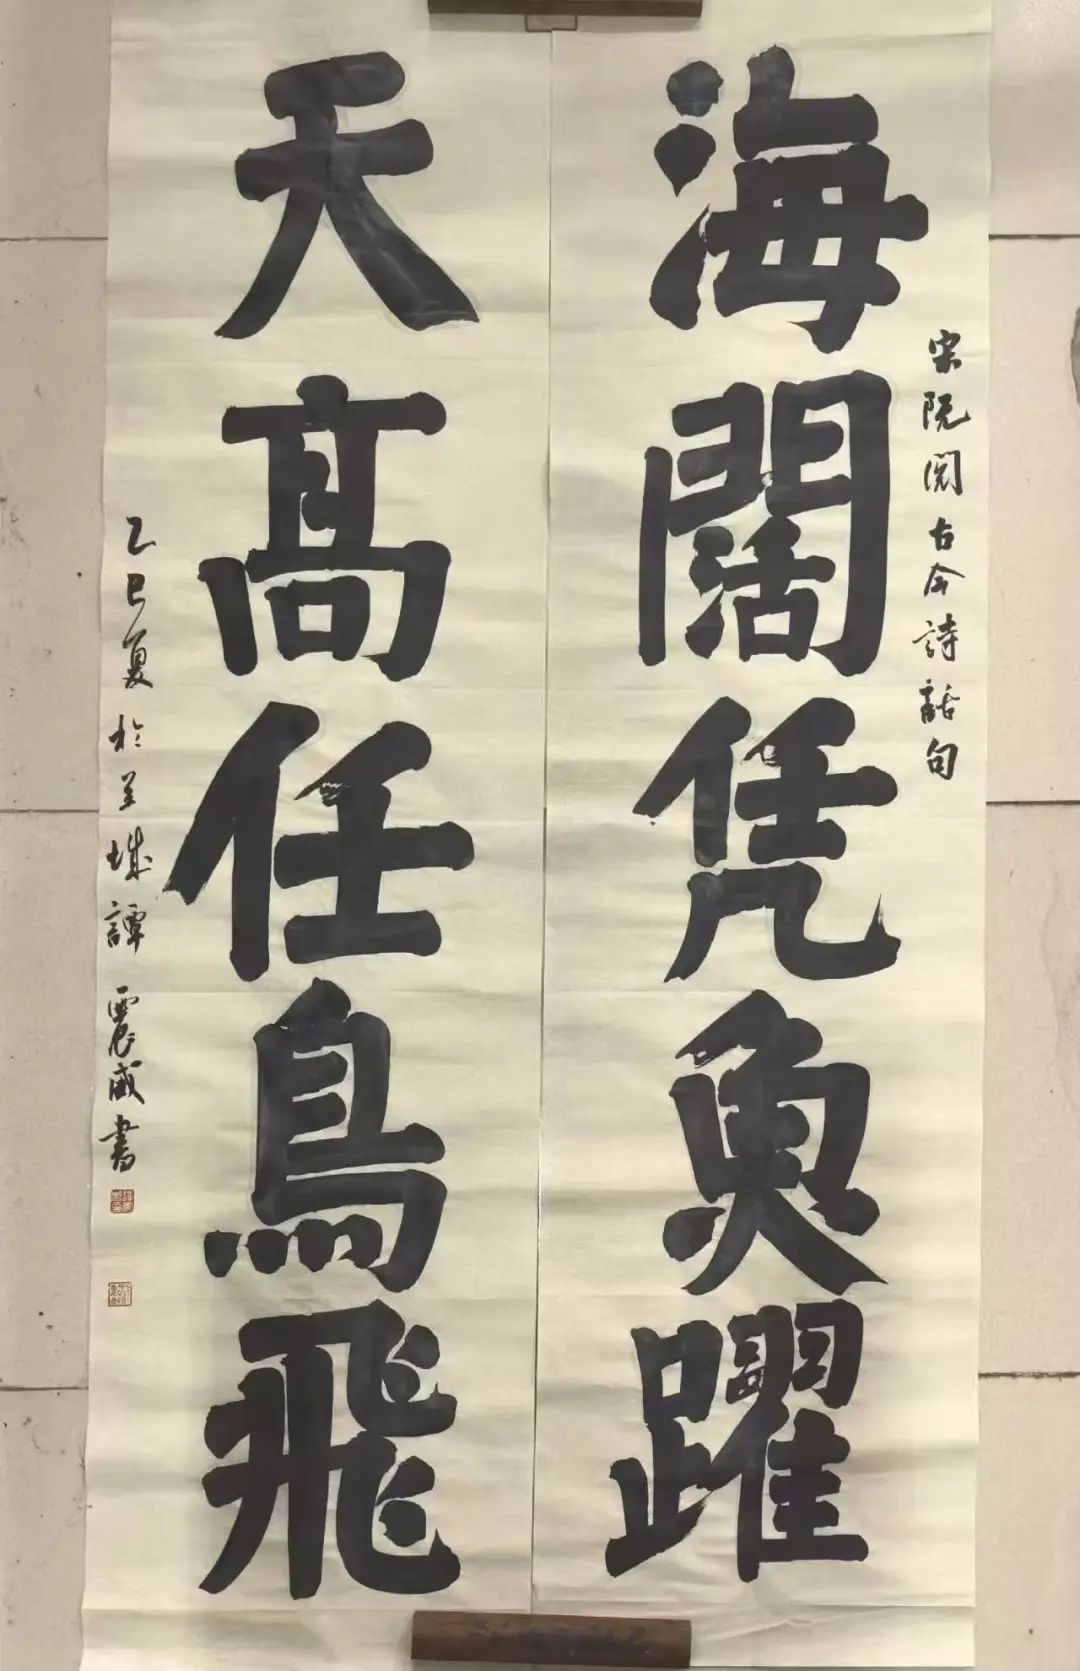 海闊凭魚躍
宋阮閱古今詩話句
天高任鳥飛
乙巳夏於羊城譚震威書